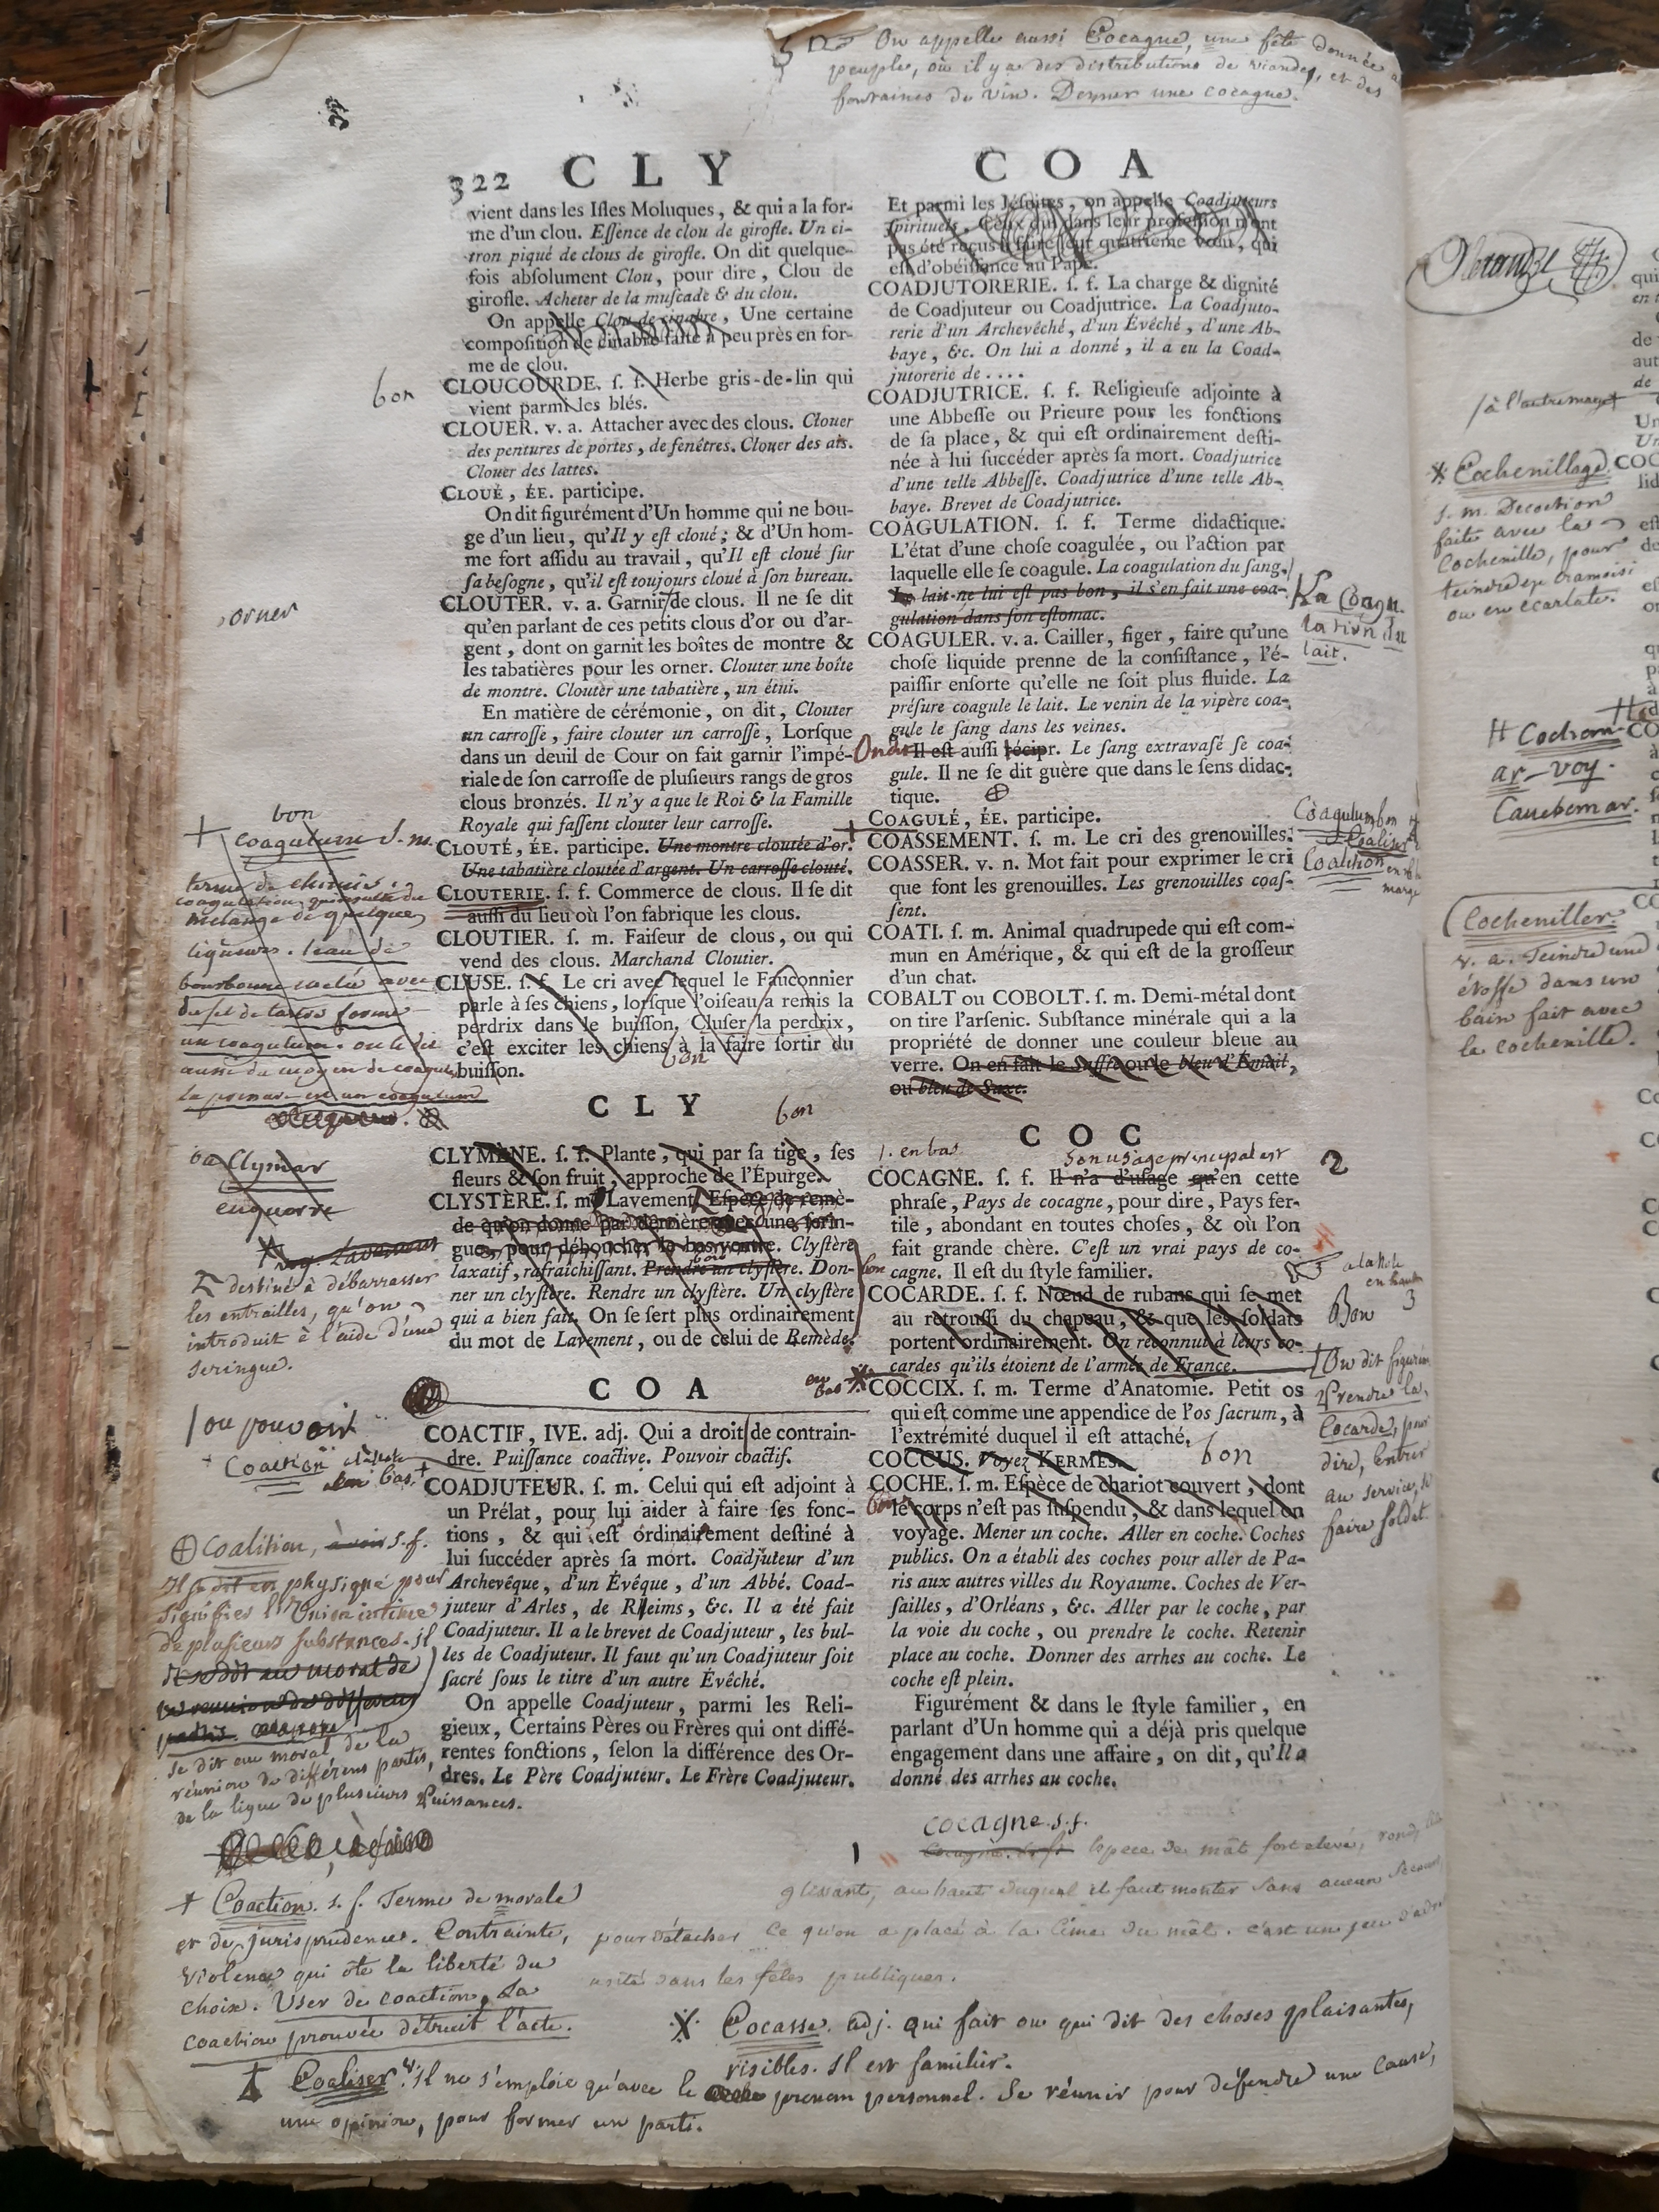 On appelle aussi Cocagne, une fête donnée
peuple, où il y a des distributions de viandes, et des
fontaines de vin. Donner une cocagne.
322 CLY
vient dans les Iſles Moluques, & qui a la for-
me d'un clou. Eſſence de clou de girofle. Un ci-
tron piqué de clous de girofle. On dit quelque-
fois abſolument Clou, pour dire, Clou de
girofle. Acheter de la muſcade & du clou.
On appelle Clou de cinabre, Une certaine
compoſition de cinabre faite à peu près en for-
me de clou.
bon
CLOUCOURDE. ſ. f. Herbe gris-de-lin qui
vient parmi les blés.
CLOUER. v. a. Attacher avec des clous. Clouer
des pentures de portes, de fenêtres. Clouer des ais.
Clouer des lattes.
CLOUÉ, ÉE. participe.
On dit figurément d'Un homme qui ne bou-
ge d'un lieu, qu'Il y eſt cloué; & d'Un hom-
me fort aſſidu au travail, qu'Il eſt cloué ſur
ſa beſogne, qu'il eſt toujours cloué à ſon bureau.
orner
CLOUTER. v. a. Garnir de clous. Il ne ſe dit
qu'en parlant de ces petits clous d'or ou d'ar-
gent, dont on garnit les boîtes de montre &
les tabatières pour les orner. Clouter une boîte
de montre. Clouter une tabatière, un étui.
En matière de cérémonie, on dit, Clouter
un carroſſe, faire clouter un carroſſe, Lorſque
dans un deuil de Cour on fait garnir l'impé-
riale de ſon carroſſe de pluſieurs rangs de gros
clous bronzés. Il n'y a que le Roi & la Famille
Royale qui faſſent clouter leur carroſſe.
CLOUTÉ, ÉE. participe. Une montre cloutée d'or.
Une tabatière cloutée d'argent. Un carroſſe clouté.
CLOUTERIE. ſ. f. Commerce de clous. Il ſe dit
auſſi du lieu où l'on fabrique les clous.
CLOUTIER. ſ. m. Faiſeur de clous, ou qui
vend des clous. Marchand Cloutier.
CLUSE. ſ. f. Le cri avec lequel le Fauconnier
parle à ſes chiens, lorſque l'oiſeau a remis la
perdrix dans le buiſſon. Cluſer la perdrix,
c'eſt exciter les chiens à la faire ſortir du
buiſſon.
bon
bon
+ coagulum s. m.
terme de chimie.
coagulation qui résulte du
mélange de quelques
liqueurs. l'eau de
avec
du sel de tartre forme
un coagulum. on le dit
aussi du moyen de coaguler
la présure est un coagulum
CLY
bon
CLYMÈNE. ſ. f. Plante, qui par ſa tige, ſes
fleurs & ſon fruit, approche de l'Épurge.
CLYSTÈRE. ſ. m. Lavement. Eſpèce de remè-
de qu'on donne par derrière avec une ſerin-
gue, pour déboucher le bas ventre. Clyſtère
laxatif, rafraîchiſſant. Prendre un clyſtère. Don-
ner un clyſtère. Rendre un clyſtère. Un clyſtère
qui a bien fait. On ſe ſert plus ordinairement
du mot de Lavement, ou de celui de Remède.
Clymar
enquerre
voy. Lavement
destiné à débarrasser
les entrailles, qu'on
introduit à l'aide d'une
seringue.
COA
COACTIF, IVE. adj. Qui a droit de contrain-
dre. Puiſſance coactive. Pouvoir coactif.
/ ou pouvoir
+ Coaction
en bas. +
COADJUTEUR. ſ. m. Celui qui eſt adjoint à
un Prélat, pour lui aider à faire ſes fonc-
tions, & qui eſt ordinairement deſtiné à
lui ſuccéder après ſa mort. Coadjuteur d'un
Archevêque, d'un Évêque, d'un Abbé. Coad-
juteur d'Arles, de Rheims, &c. Il a été fait
Coadjuteur. Il a le brevet de Coadjuteur, les bul-
les de Coadjuteur. Il faut qu'un Coadjuteur ſoit
ſacré ſous le titre d'un autre Évêché.
On appelle Coadjuteur, parmi les Reli-
gieux, Certains Pères ou Frères qui ont diffé-
rentes fonctions, ſelon la différence des Or-
dres. Le Père Coadjuteur. Le Frère Coadjuteur.
⊕ Coalition, s. f.
Il se dit en physique pour
signifier l'Union intime
de plusieurs substances. il
se dit au moral de
la reunion de differens
partis.
se dit au moral, de la
réunion de différens partis,
de la ligue de plusieurs Puissances.
+ Coaction. s. f. Terme de morale
et de jurisprudence. Contrainte,
Violence qui ôte la liberté du
choix. User de coaction. La
coaction prouvée détruit l'acte.
Coaliser v. Il ne s'emploie qu'avec le pronom personnel. Se réunir pour défendre une cause,
une opinion, pour former un parti.
COA
Et parmi les Jéſuites, on appelle Coadjuteurs
ſpirituels, Ceux qui dans leur profeſſion n'ont
pas été reçus à faire leur quatrième vœu, qui
eſt d'obéiſſance au Pape.
COADJUTORERIE. ſ. f. La charge & dignité
de Coadjuteur ou Coadjutrice. La Coadjuto-
rerie d'un Archevêché, d'un Évêché, d'une Ab-
baye, &c. On lui a donné, il a eu la Coad-
jutorerie de ....
COADJUTRICE. ſ. f. Religieuſe adjointe à
une Abbeſſe ou Prieure pour les fonctions
de ſa place, & qui eſt ordinairement deſti-
née à lui ſuccéder après ſa mort. Coadjutrice
d'une telle Abbeſſe. Coadjutrice d'une telle Ab-
baye. Brevet de Coadjutrice.
COAGULATION. ſ. f. Terme didactique.
L'état d'une choſe coagulée, ou l'action par
laquelle elle ſe coagule. La coagulation du ſang.
Le lait ne lui eſt pas bon, il s'en fait une coa-
gulation dans ſon eſtomac.
La Coagu-
lation du
lait.
COAGULER. v. a. Cailler, figer, faire qu'une
choſe liquide prenne de la conſiſtance, l'é-
paiſſir enſorte qu'elle ne ſoit plus fluide. La
préſure coagule le lait. Le venin de la vipère coa-
gule le ſang dans les veines.
On dit Il eſt auſſi récipr. Le ſang extravaſé ſe coa-
gule. Il ne ſe dit guère que dans le ſens didac-
tique. ⊕
COAGULÉ, ÉE. participe.
COASSEMENT. ſ. m. Le cri des grenouilles.
COASSER. v. n. Mot fait pour exprimer le cri
que font les grenouilles. Les grenouilles coaſ-
ſent.
Coagulum bon
Coaliser
Coalition en
marge
COATI. ſ. m. Animal quadrupede qui eſt com-
mun en Amérique, & qui eſt de la groſſeur
d'un chat.
COBALT ou COBOLT. ſ. m. Demi-métal dont
on tire l'arſenic. Subſtance minérale qui a la
propriété de donner une couleur bleue au
verre. On en fait le Saffre ou le bleu d'Émail,
ou bleu de Saxe.
COC
1. en bas
son usage principal est
2
COCAGNE. ſ. f. Il n'a d'uſage qu'en cette
phraſe, Pays de cocagne, pour dire, Pays fer-
tile, abondant en toutes choſes, & où l'on
fait grande chère. C'eſt un vrai pays de co-
cagne. Il eſt du ſtyle familier.
en haut
3
COCARDE. ſ. f. Nœud de rubans qui ſe met
au retrouſſi du chapeau, & que les ſoldats
portent ordinairement. On reconnut à leurs co-
cardes qu'ils étoient de l'armée de France.
Bon
On dit figurém
Prendre la
Cocarde, pour
dire, Entrer
au service, se
faire soldat.
en bas
COCCIX. ſ. m. Terme d'Anatomie. Petit os
qui eſt comme une appendice de l'os ſacrum, à
l'extrémité duquel il eſt attaché.
COCCUS. Voyez KERMÈS.
bon
COCHE. ſ. m. Eſpèce de chariot couvert, dont
le corps n'eſt pas ſuſpendu, & dans lequel on
voyage. Mener un coche. Aller en coche. Coches
publics. On a établi des coches pour aller de Pa-
ris aux autres villes du Royaume. Coches de Ver-
ſailles, d'Orléans, &c. Aller par le coche, par
la voie du coche, ou prendre le coche. Retenir
place au coche. Donner des arrhes au coche. Le
coche eſt plein.
Figurément & dans le ſtyle familier, en
parlant d'Un homme qui a déjà pris quelque
engagement dans une affaire, on dit, qu'Il a
donné des arrhes au coche.
cocagne. s. f.
1 Cocagne. Espece de mât fort elevé, rond,
glissant, au haut duquel il faut monter sans aucun secours
pour détacher ce qu'on a placé à la cime du mât. c'est un jeu d'adresse
usité dans les fêtes publiques.
Cocasse. adj. qui fait ou qui dit des choses plaisantes,
risibles. Il est familier.
/ à l'autre marge
* Cochenillage
s. m. Decoction
faite avec la
Cochenille, pour
teindre en cramoisi
ou en écarlate.
Cochem-
ar - voy.
Cauchemar.
Cocheniller.
v. a. Teindre une
étoffe dans un
bain fait avec
la cochenille.